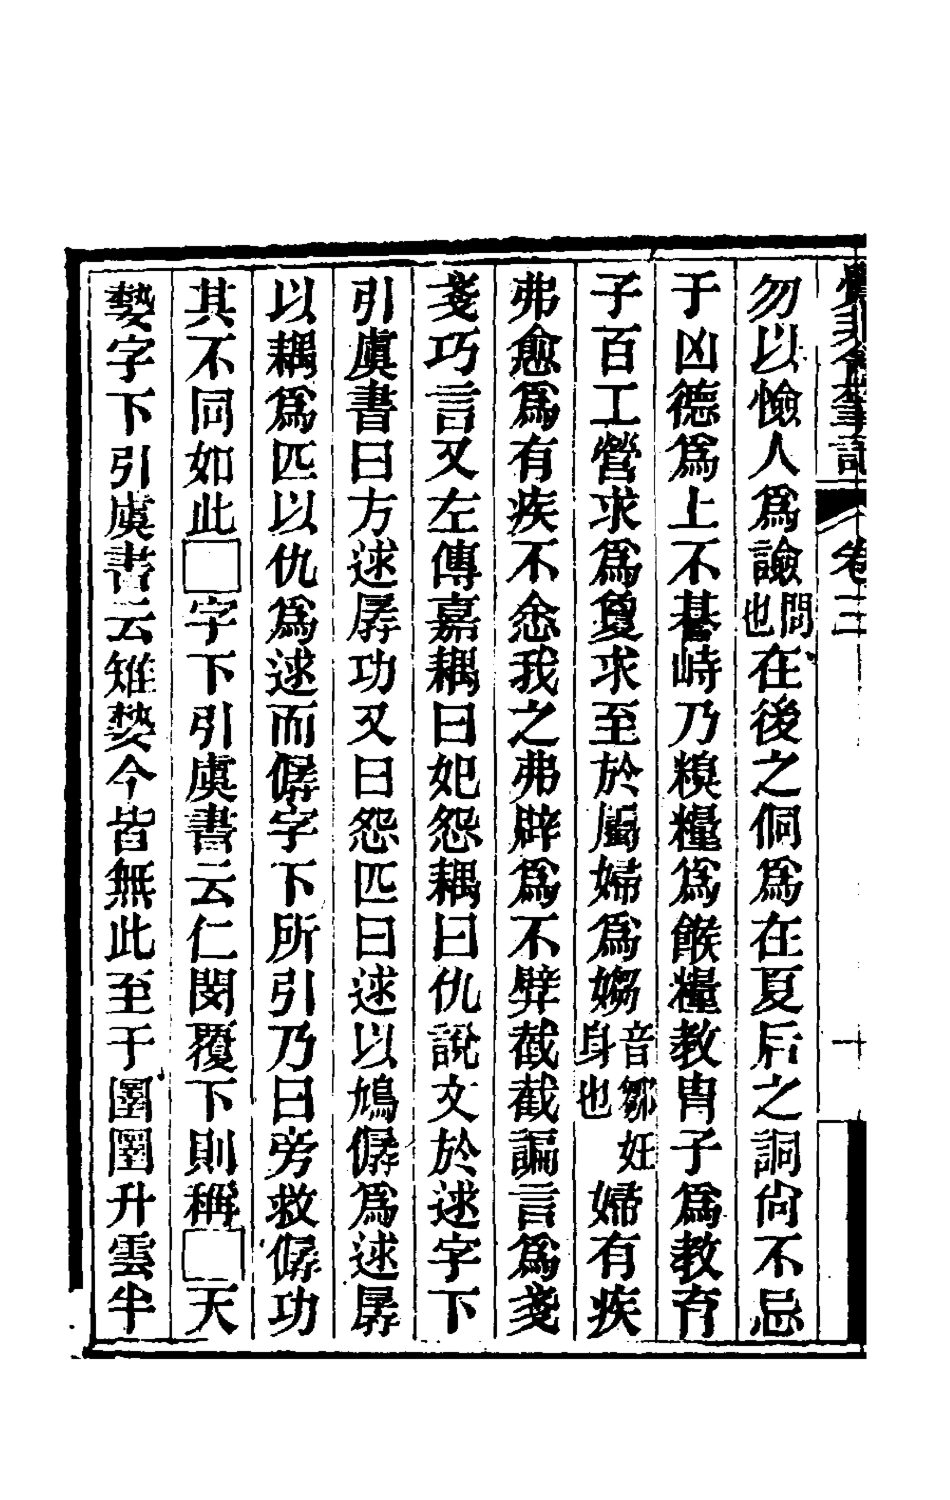 覺非盦筆記 卷三 十
勿以憸人爲譣問也在後之侗爲在夏后之詷尙不忌
于凶德爲上不諅峙乃糗糧爲餱糧教胄子爲教育
子百工營求爲敻求至於屬婦爲媰音鄒妊身也婦有疾
弗愈爲有疾不悆我之弗辟爲不𨐨截截諞言爲戔
戔巧言又左傳嘉耦曰妃怨耦曰仇說文於逑字下
引虞書曰方逑孱功又曰怨匹曰逑以鳩僝爲逑孱
以耦爲匹以仇爲逑而僝字下所引乃曰旁救僝功
其不同如此□字下引虞書云仁閔覆下則稱□天
𡠗字下引虞書云雉𡠗今皆無此至于圛圛升雲半